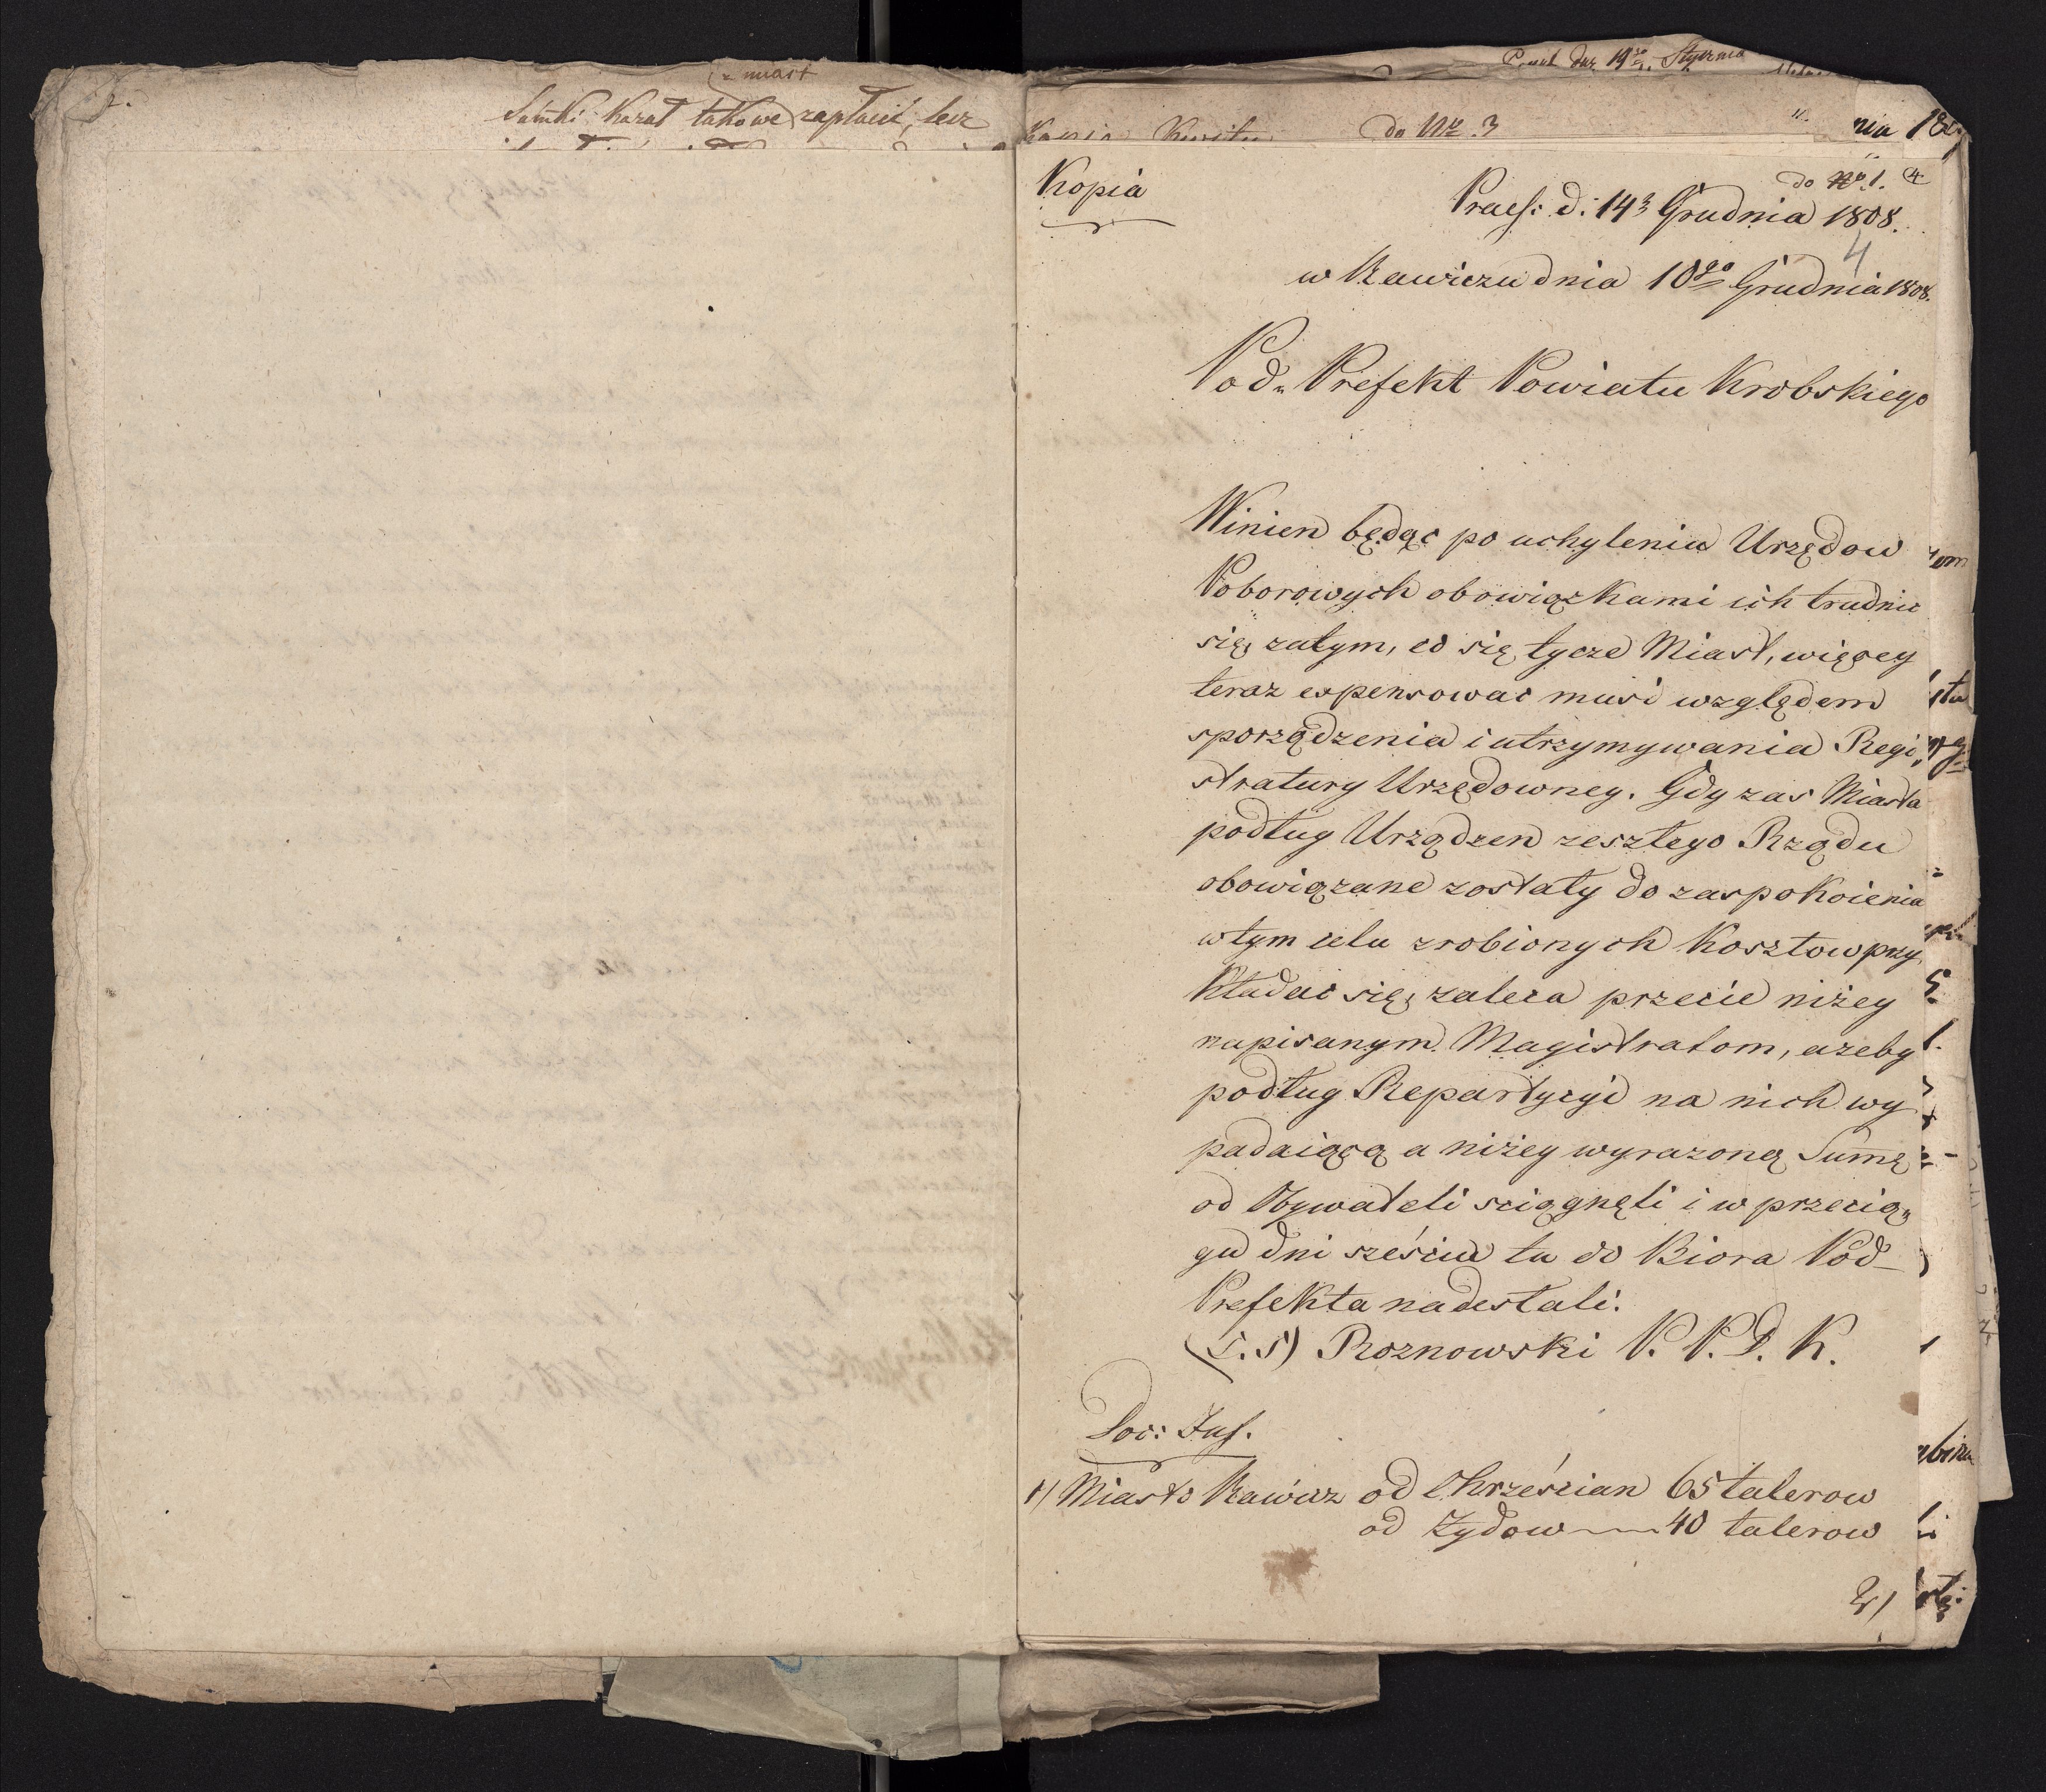 takowe zapłacić, lecz
do Nro 3
Kopia
do No. 1. 4
Praes: d: 14 Grudnia 1808.
4
w Rawiczu dnia 10go Grudnia 1808.
Pod-Prefekt Powiatu Krobskiego
Winien będąc po uchyleniu Urzędow
Poborowych obowiązkami ich trudnic
się, zatym, co się tycze Miast, więcey
teraz expensowac musi względem
sporządzenia i utrzymywania Regi„
stratury Urzędowney. Gdy zas Miasta
podług Urządzen zeszłego Rządu
obowiązane zostały do zaspokoienia
w tym celu zrobionych Kosztow przy„
kładac się, zaleca przecie niżey
napisanym Magistratom, azeby
podług Repartycyi na nich wy
padaiącą a niżey wyrazoną Sum̃ę
od Obywateli sciągnęli i w przecią„
gu dni sześciu tu do Biora Pod-
Prefekta nadestali.
(L. S) Roznowski P. P. P. K.
Loc: Jus.
1) Miasto Rawicz od Chrześcian 65 talerow
od Żydow 40 talerow
2)